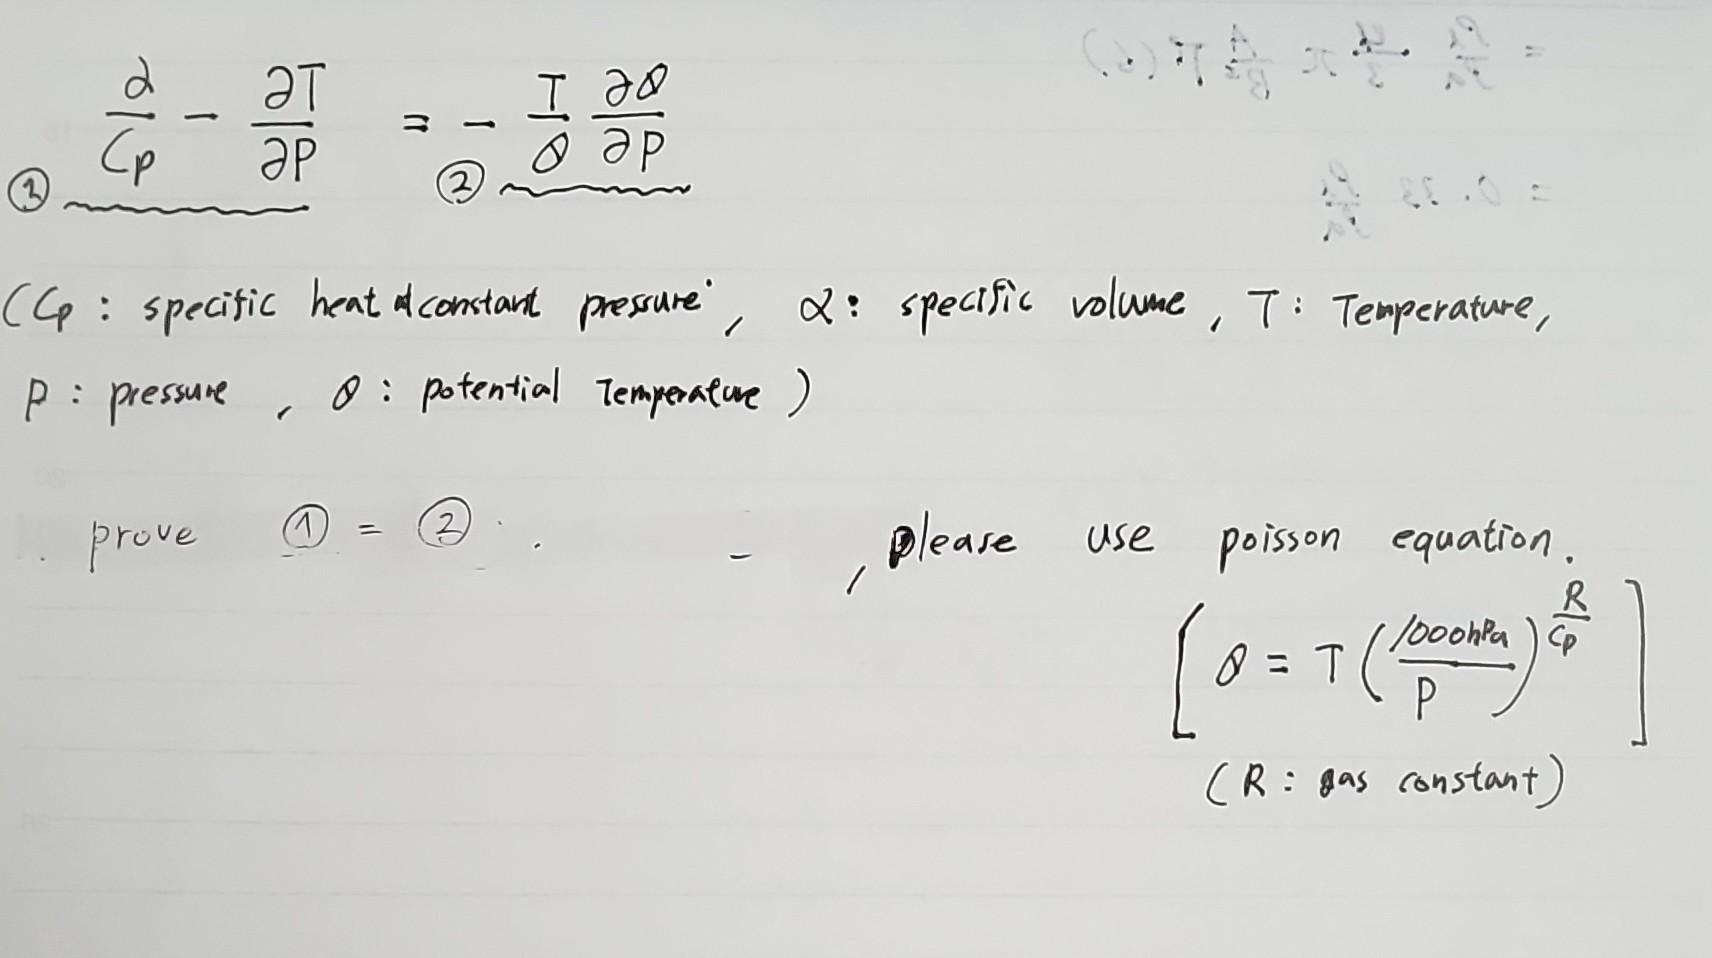 ① α/Cp − ∂T/∂P = − ② T/θ ∂θ/∂P
(Cp : specific heat at constant pressure, α : specific volume, T : Temperature,
P : pressure, θ : potential Temperature)
prove ① = ②. , please use poisson equation.
[θ = T (1000hPa/P)^(R/Cp)]
(R : gas constant)